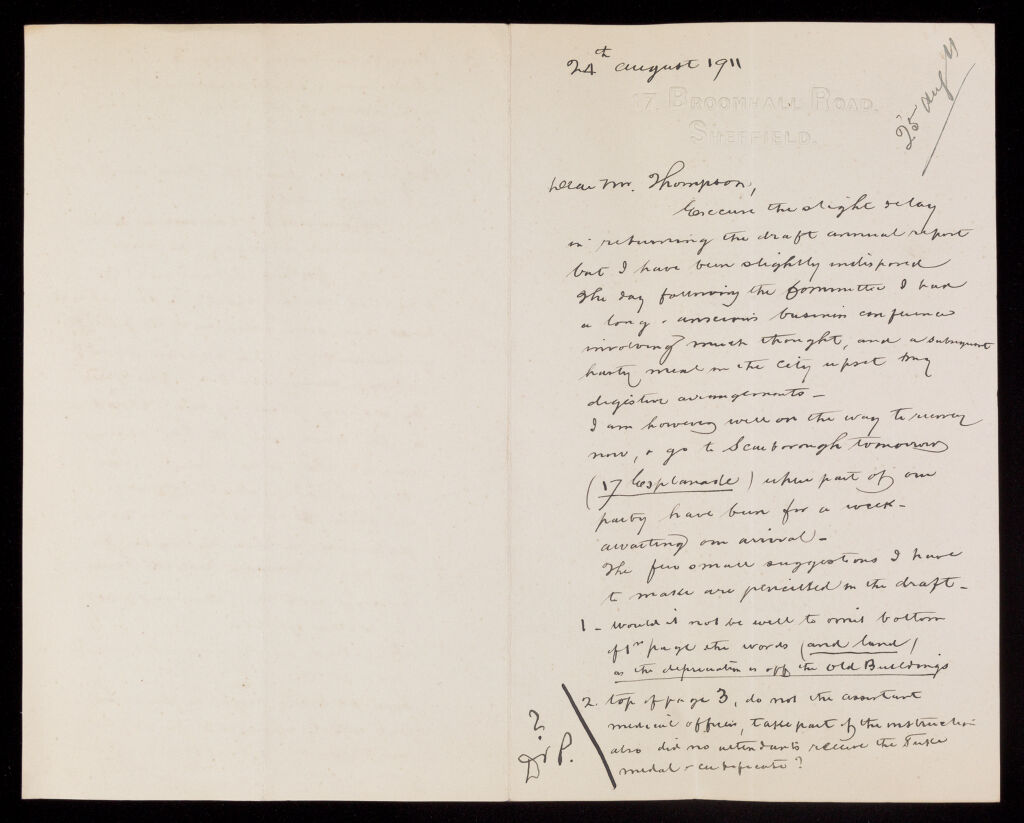 24th August 1911
25 Aug 11
17, BROOMHALL ROAD.
SHEFFIELD.
Dear Mr. Thompson,
Excuse the slight delay
in returning the draft annual report
but I have been slightly indisposed
The day following the Committee I had
a long & anxious business conference
involving much thought, and a subsequent
hasty meal in the City upset my
digestive arrangements -
I am however well on the way to recovery
now, & go to Scarborough tomorrow
(17 Esplanade) where part of our
party have been for a week -
awaiting our arrival -
The few small suggestions I have
to make are pencilled in the draft -
1 - would it not be well to omit bottom
of 1st page the words (and land)
as the depreciation is off the old Buildings
2. top of page 3, do not the assistant
medical officers, take part of the instruction
also did no attendants receive the Tuke
medal or certificate?
? Dr P.